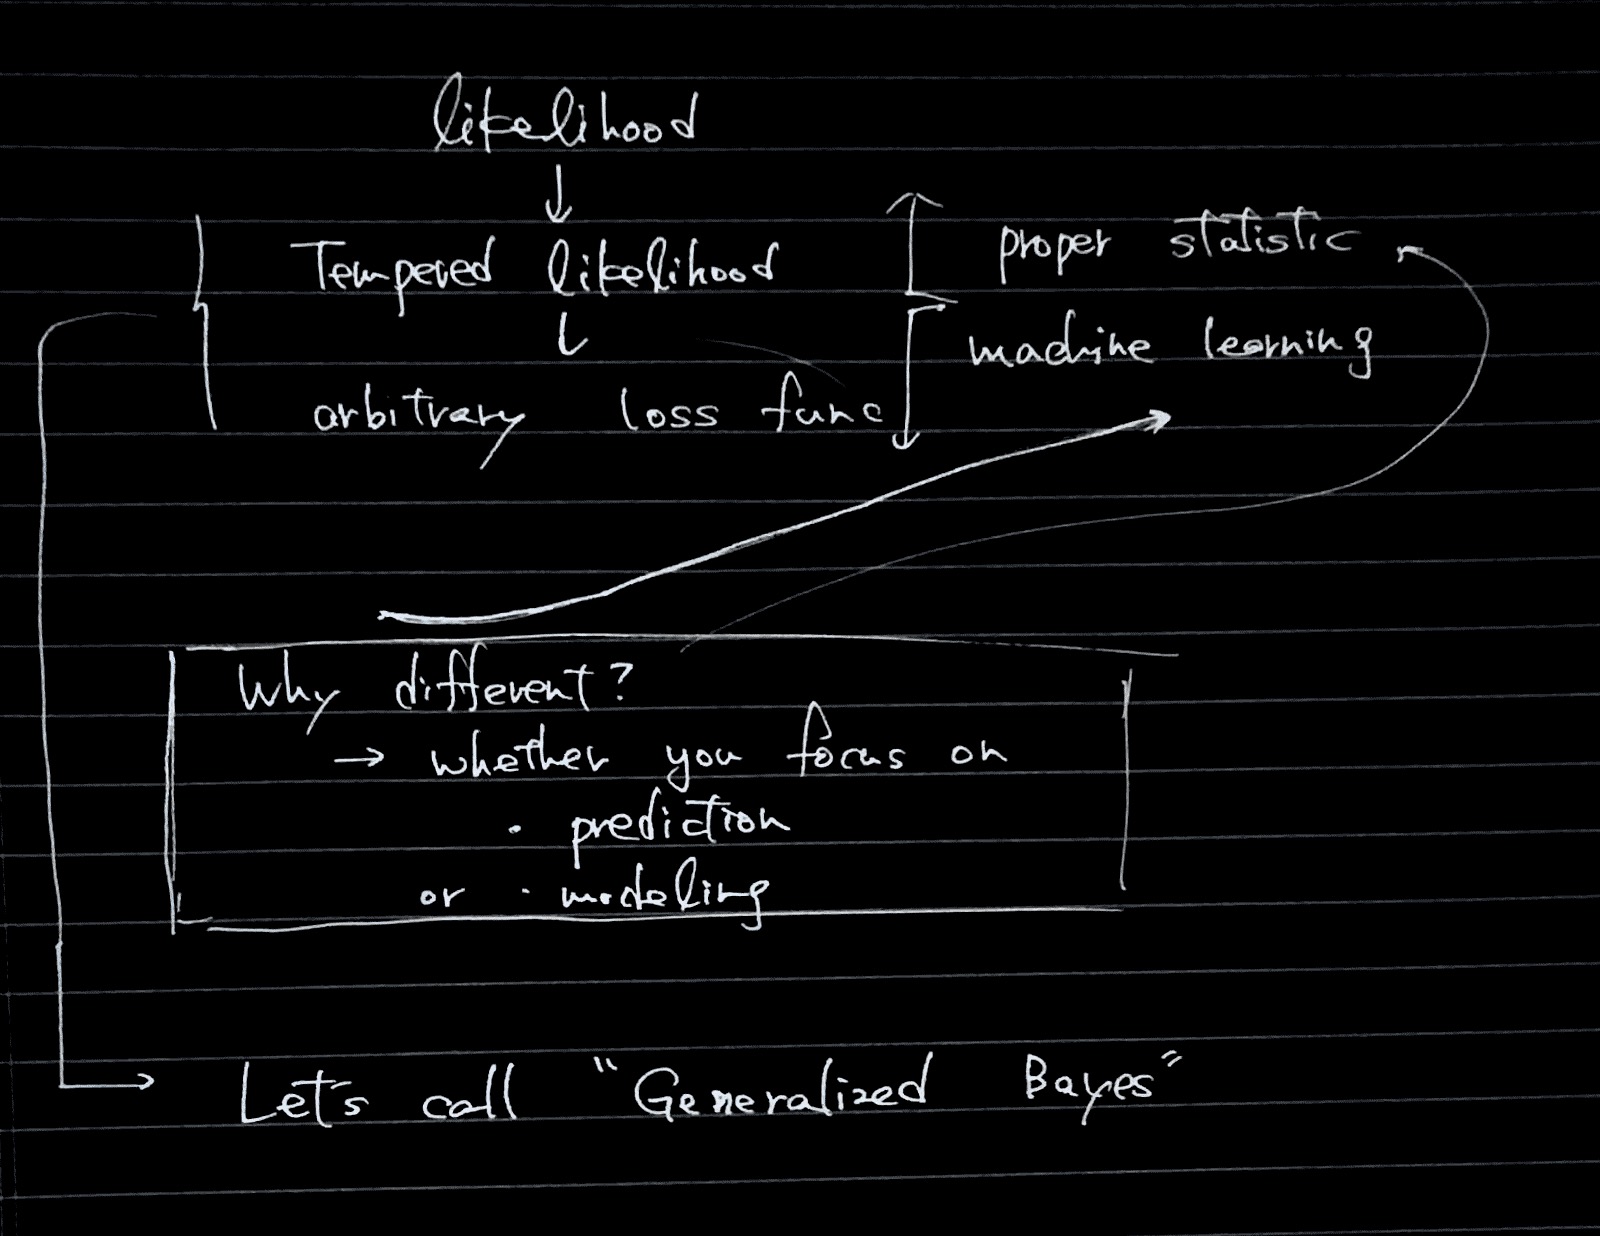 likelihood
↓
Tempered likelihood
↓
arbitrary loss func
proper statistic
machine learning
Why different?
→ whether you focus on
· prediction
or · modeling
Let's call "Generalized Bayes"